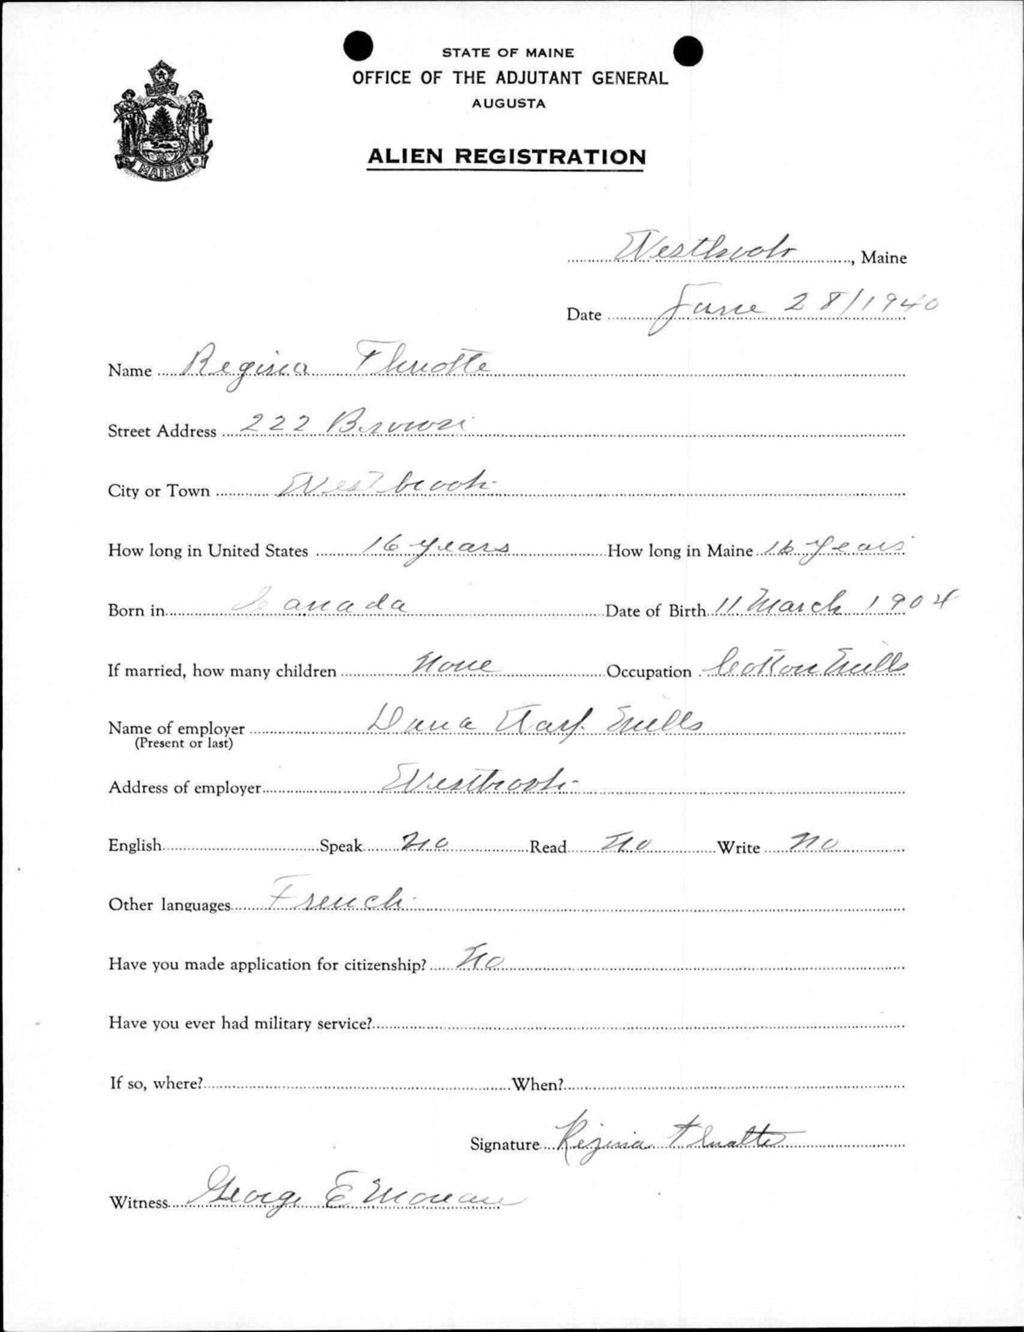 STATE OF MAINE
OFFICE OF THE ADJUTANT GENERAL
AUGUSTA
MAINE
ALIEN REGISTRATION
Westbrook, Maine
Date June 28/1940
Name Regina
Street Address 222 Brown
City or Town Westbrook
How long in United States 16 years How long in Maine 16 Years
Born in Canada Date of Birth 11 March 1904
If married, how many children None Occupation Cotton Mills
Name of employer Dana Warp Mills
(Present or last)
Address of employer Westbrook
English Speak No Read No Write No
Other languages French
Have you made application for citizenship? No
Have you ever had military service?
If so, where? When?
Signature Regina
Witness George E Moreau